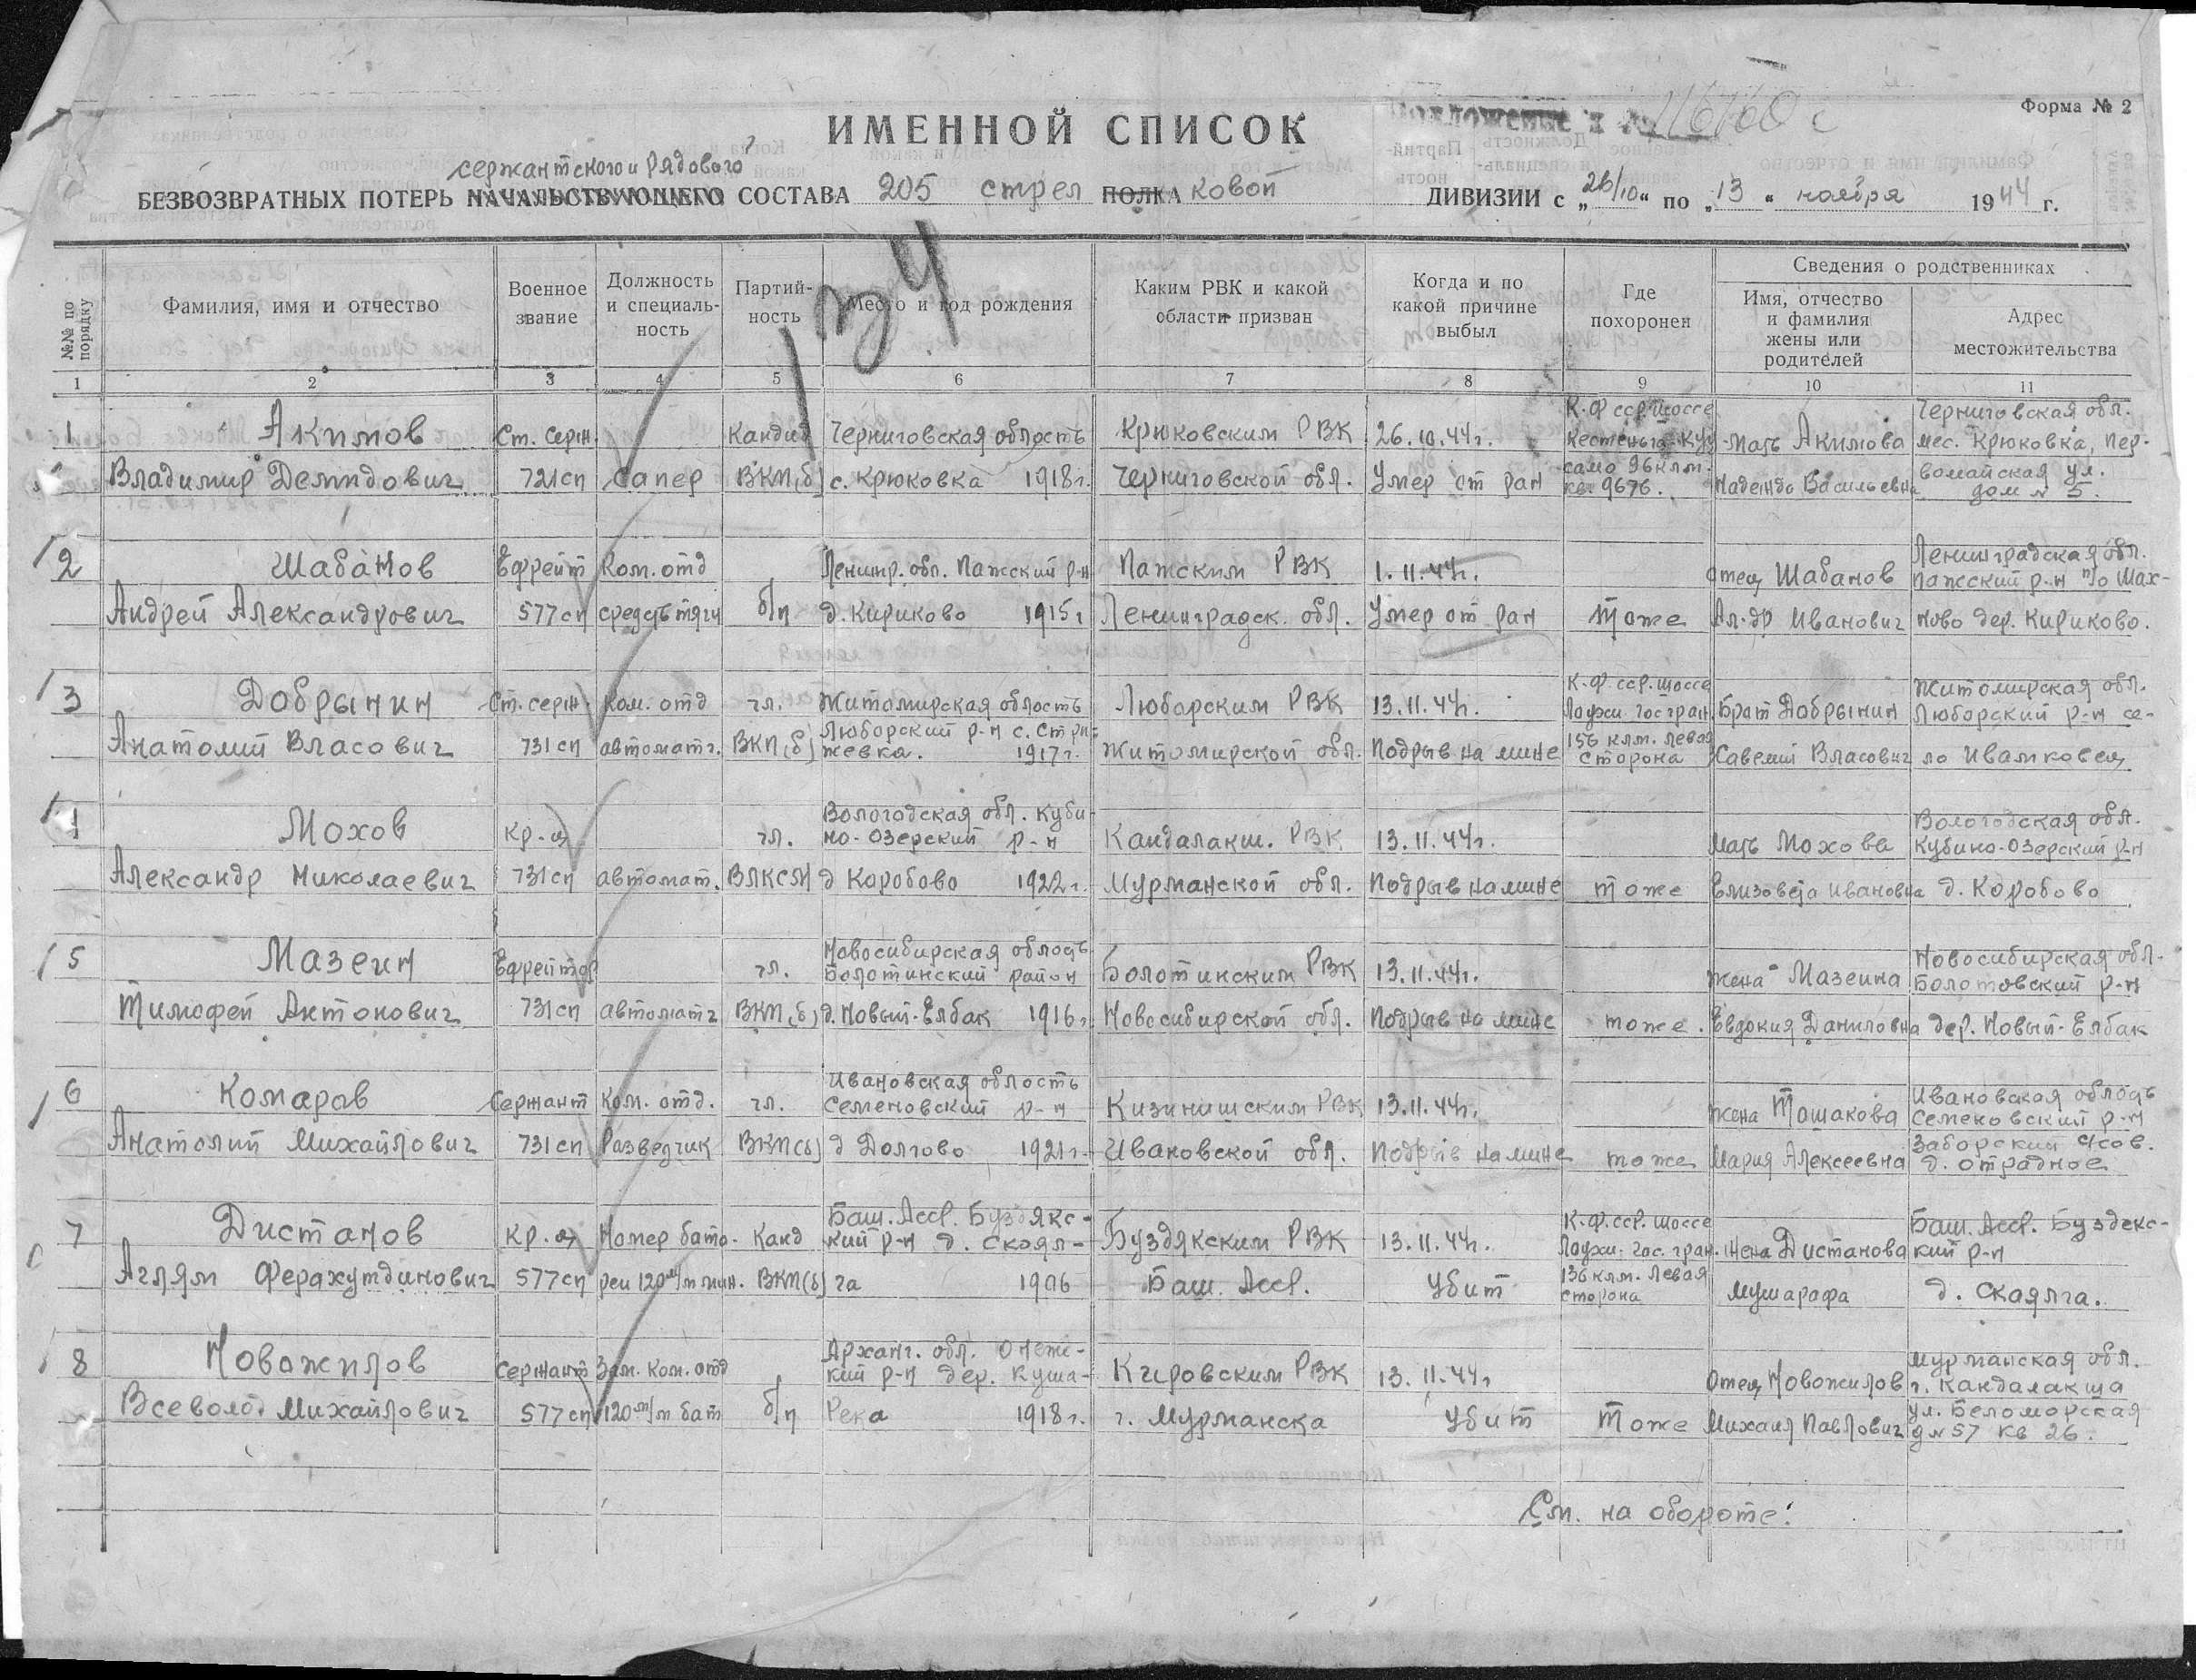 Форма № 2
ИМЕННОЙ СПИСОК
сержантского и рядового
БЕЗВОЗВРАТНЫХ ПОТЕРЬ НАЧАЛЬСТВУЮЩЕГО СОСТАВА 205 стрел ПОЛКА ковой ДИВИЗИИ с „26/10“ по „13“ ноября 1944 г.
№№ по порядку
Фамилия, имя и отчество
Военное звание
Должность и специаль-ность
Партий-ность
Место и год рождения
Каким РВК и какой области призван
Когда и по какой причине выбыл
Где похоронен
Сведения о родственниках
Имя, отчество и фамилия жены или родителей
Адрес местожительства
1 2 3 4 5 6 7 8 9 10 11
К.Ф сср. шоссе Черниговская обл.
1 Акимов Ст. серж. Кандид Черниговская область Крюковским РВК 26.10.44г. Кестеньга-Куу- Мать Акимова мес. Крюковка, Пер-
Владимир Демидович 721сп Сапер ВКП(б) с. Крюковка 1918г. Черниговской обл. Умер от ран само 96клм. кв. 9676. Надежда Васильевна вомайская ул. дом № 5.
2 Шабанов Ефрейт Ком. отд Ленинг. обл. Пажский р-н Пажским РВК 1.11.44г. отец Шабанов Ленинградская обл. Пажский р-н п/о Шах-
Андрей Александрович 577сп средств тяги б/п д. Кириково 1915г Ленинградск. обл. Умер от ран Тоже Ал-др Иванович ново дер. Кириково.
К.Ф. сср. шоссе Житомирская обл.
3 Добрынин Ст. серж. Ком. отд чл. Житомирская область Люборским РВК 13.11.44г. Лоухи-гос гран. Брат Добрынин Люборский р-н се-
Анатолий Власович 731сп автоматч. ВКП(б) Люборский р-н с. Стри-жевка. 1917г. Житомирской обл. Подрыв на мине 156 клм. левая сторона Савелий Власович ло Иванковец
Вологодская обл. Куби- Вологодская обл.
Мохов Кр-ц чл. но-Озерский р-н Кандалакш. РВК 13.11.44г. мать Мохова Кубино-Озерский р-н
Александр Николаевич 731сп автомат. ВЛКСМ д Коробово 1922г. Мурманской обл. Подрыв на мине тоже Елизовета Ивановна д. Коробово
Новосибирская область Новосибирская обл.
5 Мазеин Ефрейтор чл. Болотинский район Болотинским РВК 13.11.44г. жена Мазеина Болотовский р-н
Тимофей Антонович 731сп автоматч ВКП(б) д. Новый-Елбак 1916г Новосибирской обл. Подрыв на мине тоже. Евдокия Даниловна дер. Новый-Елбак
Ивановская область Ивановская область
6 Комаров Сержант Ком. отд. чл. Семеновский р-н Кизнишским РВК 13.11.44г. жена Тошакова Семеновский р-н
Анатолий Михайлович 731сп Разведчик ВКП(б) д Долгово 1921г. Ивановской обл. Подрыв на мине тоже Мария Алексеевна Заборский с/сов. д. отрадное
Баш. Асср. Буздякс- К.Ф.ССР. шоссе Баш. Асср. Буздекс-
7 Дистанов Кр-ц Номер бата- Канд кий р-н д. Скоял- Буздякским РВК 13.11.44г. Лоухи-гос. гран. жена Дистанова кий р-н
Аглям Ферахутдинович 577сп реи 120м/м мин. ВКП(б) га 1906 Баш. Асср. Убит 136 клм. левая сторона Мушарафа д. Скаялга.
Арханг. обл. Онеж- Мурманская обл.
8 Новожилов Сержант Зам. ком. отд кий р-н дер. Куша- Кировским РВК 13.11.44г Отец Новожилов г. Кандалакша
Всеволод Михайлович 577сп 120м/м бат б/п Река 1918г. г. Мурманска Убит Тоже Михаил Павлович ул. Беломорская д№57 кв 26.
См. на обороте!